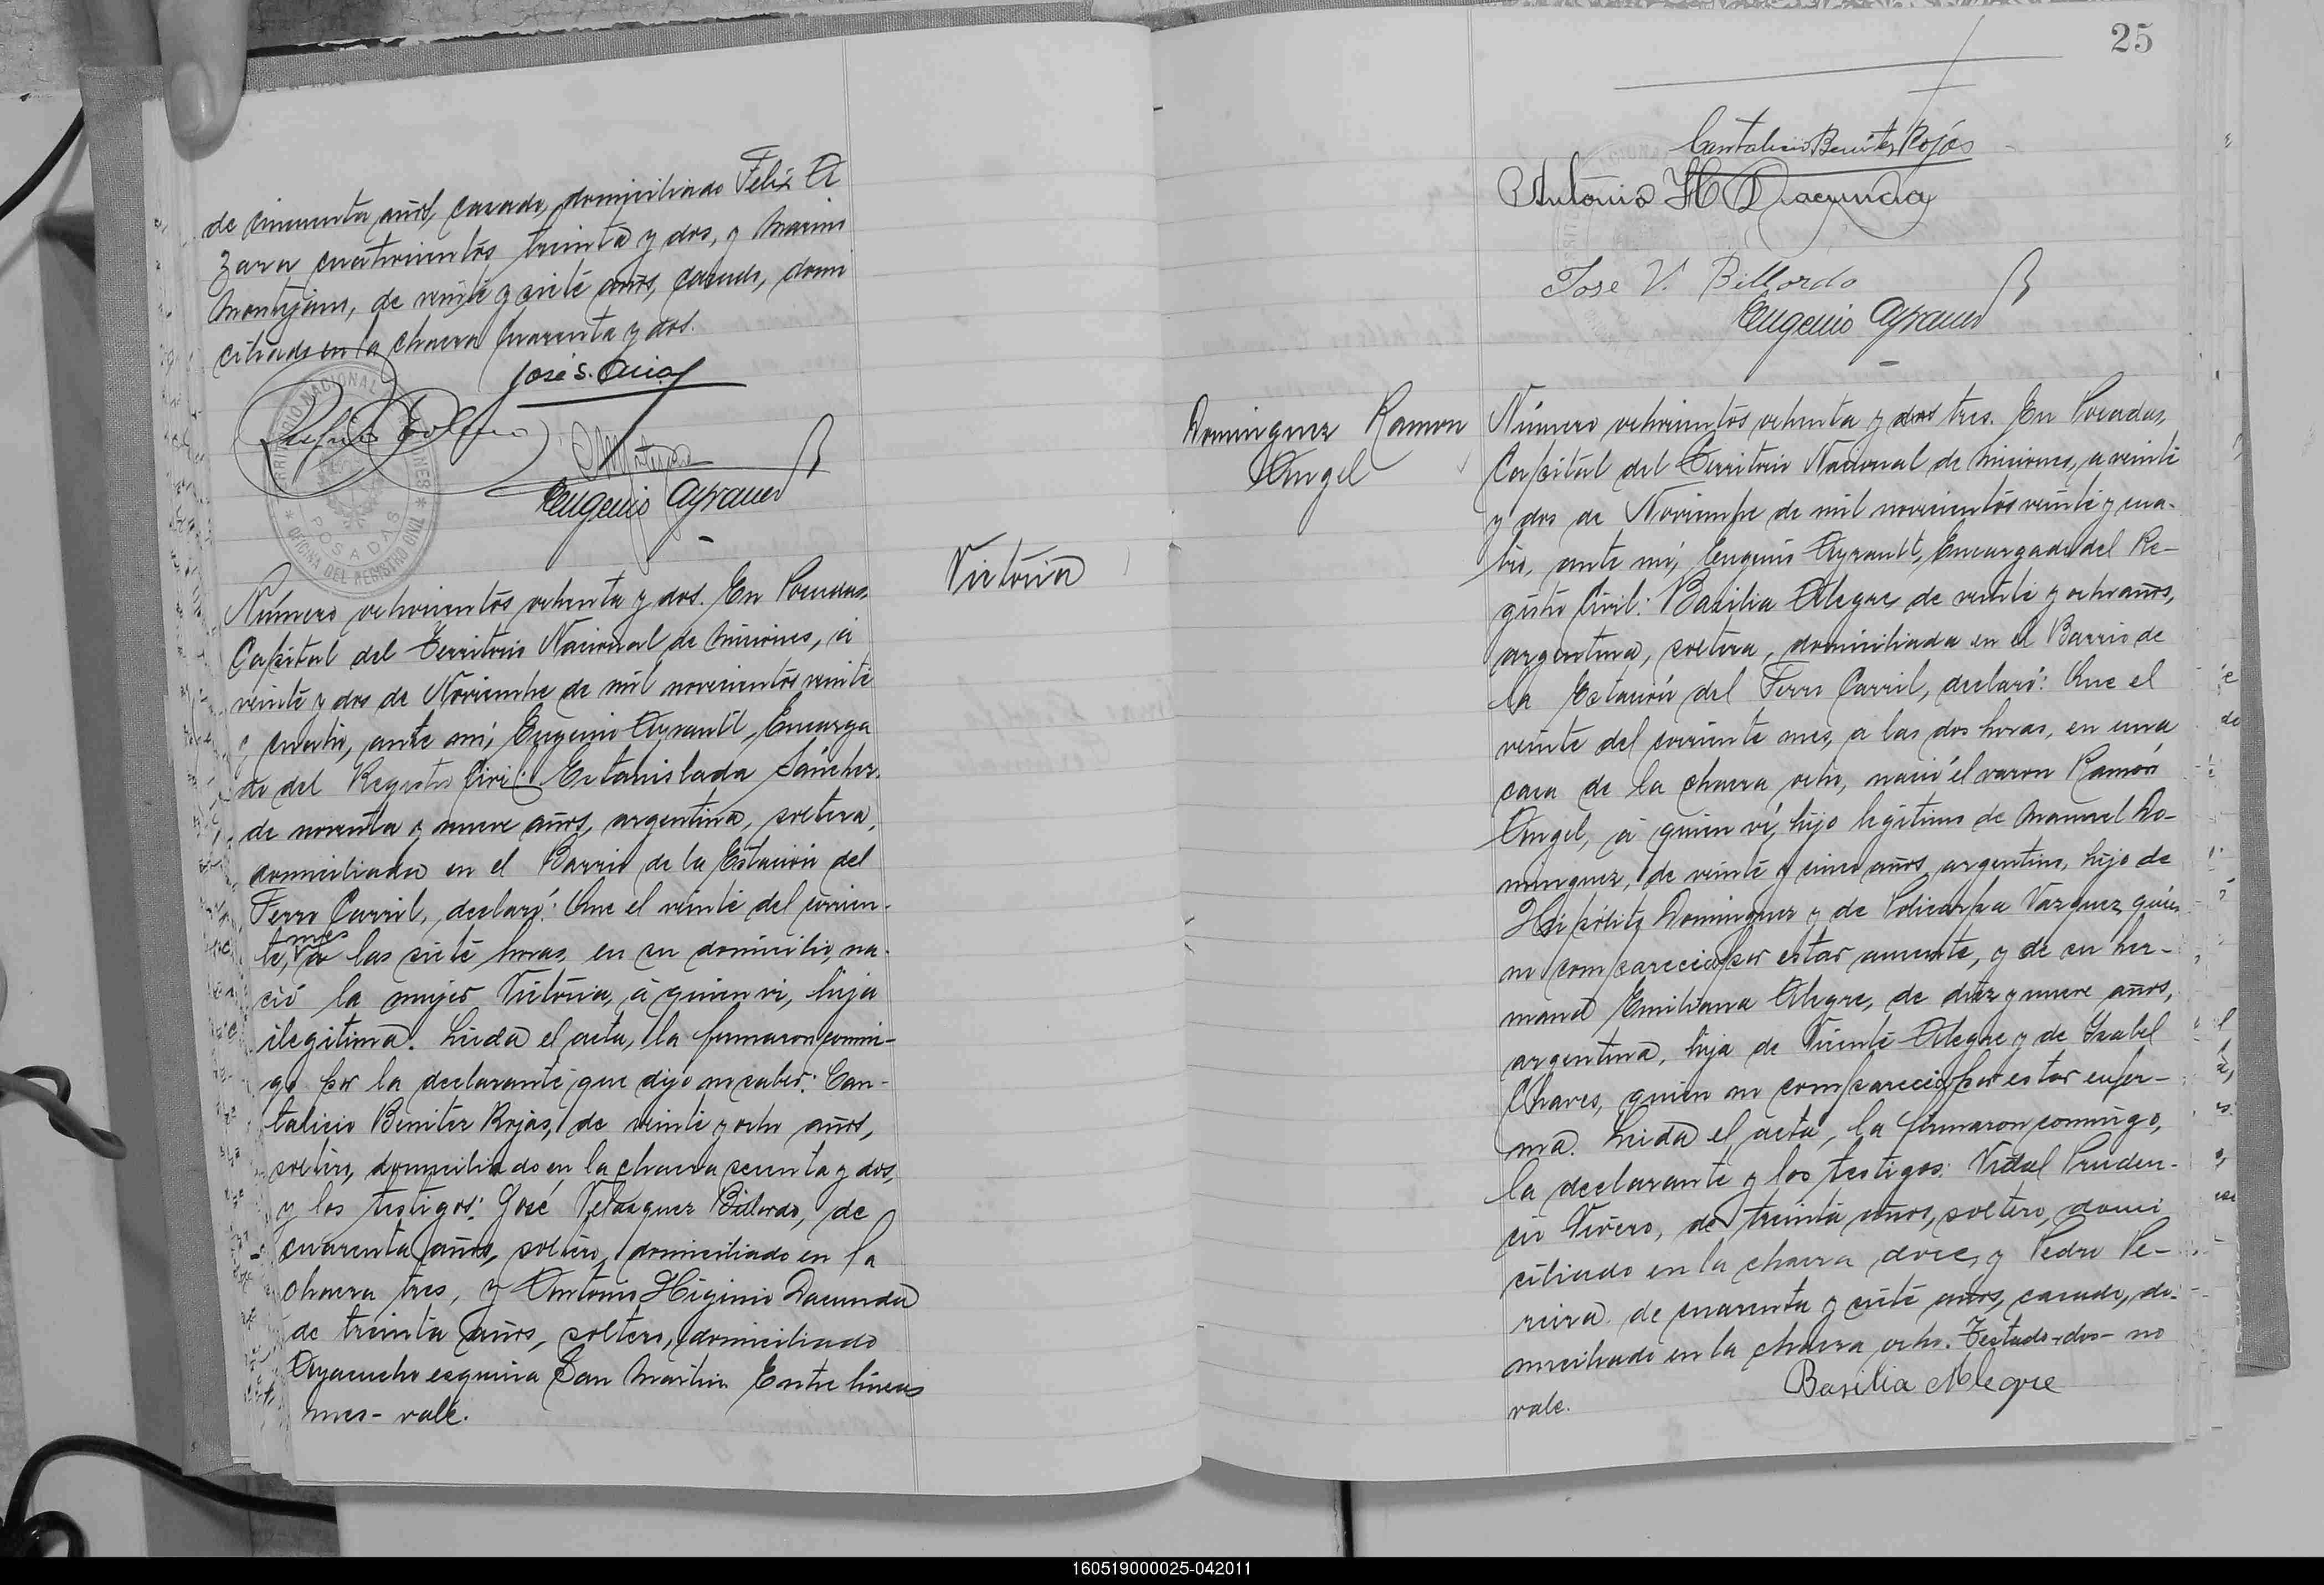 de cincuenta años, casado, domiciliado Felix A
zara cuatrocientos treinta y dos, y Marini
Montejano, de veinte y siete años, casado, domi
ciliado en la chacra cuarenta y dos.
José S.
TERRITORIO NACIONAL
OFICINA DEL REGISTRO CIVIL
POSADAS
Eugenio Ayrault
Número ochocientos ochenta y dos. En Posadas,
Capital del Territorio Nacional de Misiones, á
veinte y dos de Noviembre de mil novecientos veinte
y cuatro, ante mí, Eugenio Ayrault, Encarga
do del Registro Civil: Estanislada Sánchez,
de noventa y nueve años, argentina, soltera,
domiciliada en el Barrio de la Estación del
Ferro Carril, declaró: Que el veinte del corrien-
te, mes a las siete horas, en su domicilio, na-
ció la mujer Victoria, á quien ví, hija
ilegitima. Leida el acta, la firmaron conmi-
go por la declarante que dijo no saber: Can-
talicio Benitez Rojas, de veinte y ocho años,
soltero, domiciliado en la chacra sesenta y dos,
y los testigos: José Velazquez Billordo, de
cuarenta años, soltero, domiciliado en la
chacra tres, y Antonio Higinio Dacunda
de treinta años, soltero, domiciliado
Ayacucho esquina San Martin. Entre lineas
mes - vale.
Victoria
25
Cantalicio Benitez Rojas
Antonio H Dacunda
Jose V. Billordo
Eugenio Ayrault
Dominguez Ramon
Angel
Número ochocientos ochenta y dos tres. En Posadas,
Capital del Territorio Nacional de Misiones, a veinte
y dos de Noviembre de mil novecientos veinte y cua-
tro, ante mí, Eugenio Ayrault, Encargado del Re-
gistro Civil: Basilia Alegre, de veinte y ocho años,
argentina, soltera, domiciliada en el Barrio de
la Estación del Ferro Carril, declaró: Que el
veinte del corriente mes, a las dos horas, en una
casa de la chacra ocho, nació el varon Ramón
Angel, á quien ví, hijo legitimo de Manuel Do-
minguez, de veinte y cinco años, argentino, hijo de
Hipólito Dominguez y de Policarpa Vazquez, quien
no compareció por estar ausente, y de su her-
mana Emiliana Alegre, de diez y nueve años,
argentina, hija de Vicente Alegre y de Ysabel
Chaves, quien no compareció por estar enfer-
ma. Leida el acta, la firmaron conmigo,
la declarante y los testigos: Vidal Pruden-
cio Vivero, de treinta años, soltero, domi
ciliado en la chacra doce, y Pedro Pe-
reira, de cuarenta y siete años, casado, do-
miciliado en la chacra ocho. Testado - dos - no
vale.
Basilia Alegre
160519000025-042011